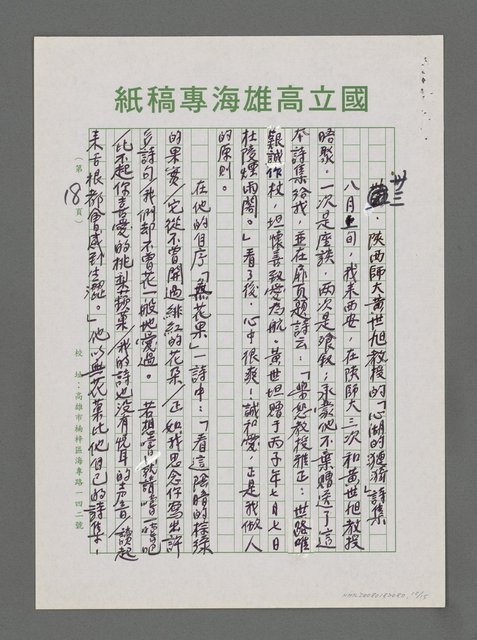 國立高雄海專稿紙
卅三、陝西師大黃世旭教授的「心湖的漣漪」詩集
八月上旬,我來西安,在陝師大三次和黃世旭教授
晤聚。一次是座談,兩次是餐敘;承蒙他不棄贈送了這
本詩集給我,並在扉頁題詩云:「樂恕教授雅正:世路唯
艱誠作杖,坦懷喜叙愛為航。黃世坦贈于丙子年七月七日
杜陵煙雨閣。」看了後,心中很爽!誠和愛,正是我做人
的原則。
在他的自序「無花果」一詩中:「看這陰暗的模樣
的果實/它從不曾開過緋紅的花朵/正如我思念你寫出許
多詩句/我們却不曾花一般地愛過。 若想嚐就請嚐一嚐吧
/比不起你喜愛的桃梨蘋果/我的詩也沒有悅耳的聲音/讀起
來舌根都會感到生澀。」他以無花果比他自己的詩集,
(第18頁)
校址:高雄市楠梓區海專路一四二號